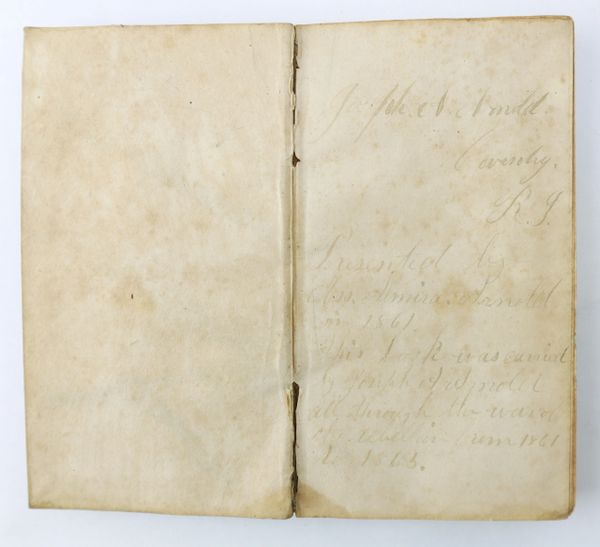 Joseph A Arnold.
Coventry.
R. I.
Presented by
Almira Arnold
in 1861.
This book was carried
by Joseph A Arnold
all through the war of
the rebellion from 1861
to 1865.